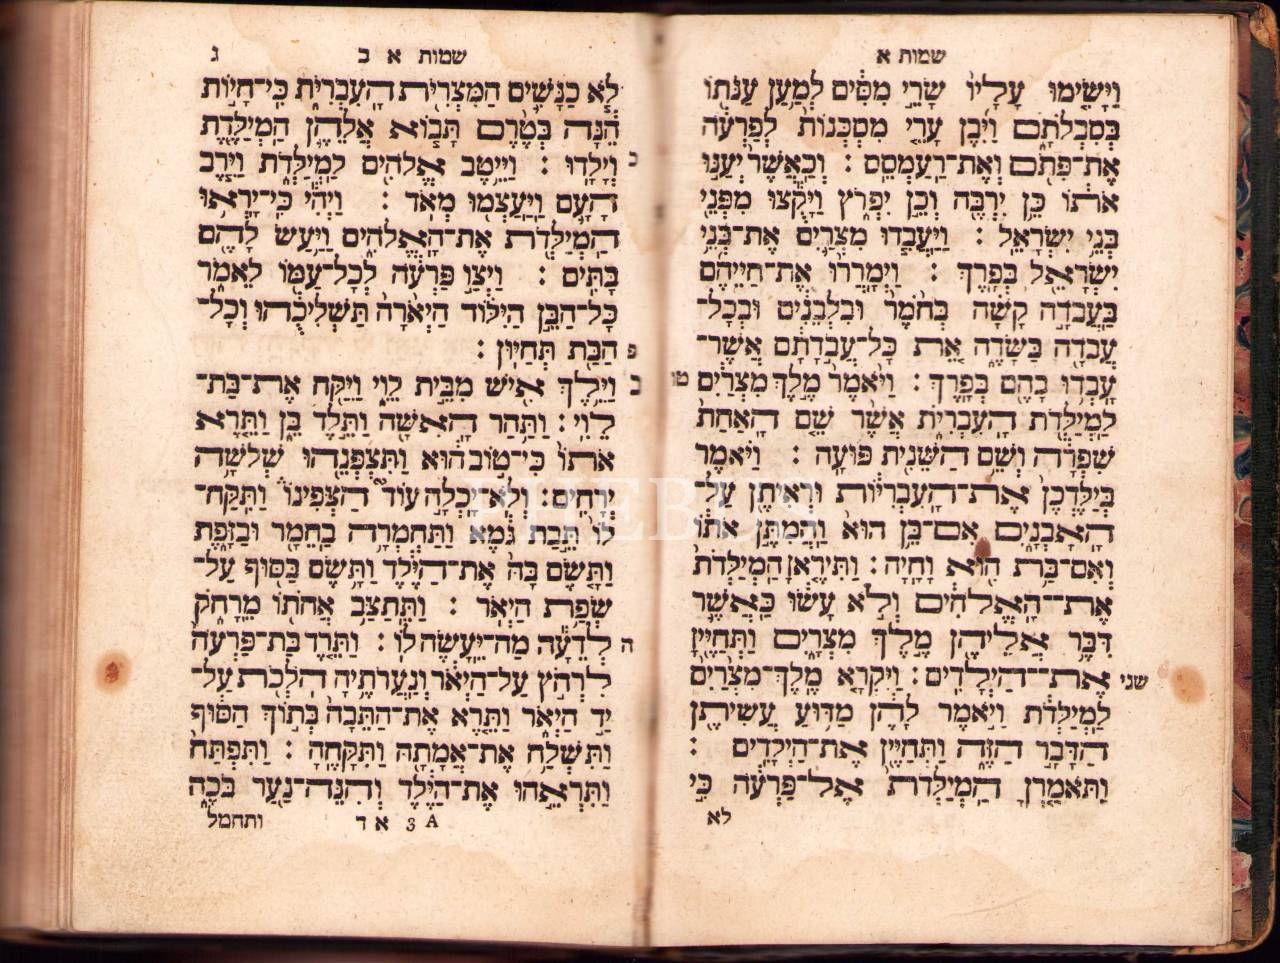 שמות א
וַיָּשִׂ֤ימוּ עָלָיו֙ שָׂרֵ֣י מִסִּ֔ים לְמַ֥עַן עַנֹּת֖וֹ
בְּסִבְלֹתָ֑ם וַיִּ֜בֶן עָרֵ֤י מִסְכְּנוֹת֙ לְפַרְעֹ֔ה
אֶת־פִּתֹ֖ם וְאֶת־רַֽעַמְסֵֽס : וְכַאֲשֶׁר֙ יְעַנּ֣וּ
אֹת֔וֹ כֵּ֥ן יִרְבֶּ֖ה וְכֵ֣ן יִפְרֹ֑ץ וַיָּקֻ֕צוּ מִפְּנֵ֖י
בְּנֵ֥י יִשְׂרָאֵֽל : וַיַּעֲבִ֧דוּ מִצְרַ֛יִם אֶת־בְּנֵ֥י
יִשְׂרָאֵ֖ל בְּפָֽרֶךְ : וַיְמָרְר֨וּ אֶת־חַיֵּיהֶ֜ם
בַּעֲבֹדָ֣ה קָשָׁ֗ה בְּחֹ֙מֶר֙ וּבִלְבֵנִ֔ים וּבְכָל־
עֲבֹדָ֖ה בַּשָּׂדֶ֑ה אֵ֚ת כָּל־עֲבֹ֣דָתָ֔ם אֲשֶׁר־
טו עָבְד֥וּ בָהֶ֖ם בְּפָֽרֶךְ : וַיֹּ֙אמֶר֙ מֶ֣לֶךְ מִצְרַ֔יִם
לַֽמְיַלְּדֹ֖ת הָֽעִבְרִיֹּ֑ת אֲשֶׁ֨ר שֵׁ֤ם הָֽאַחַת֙
שִׁפְרָ֔ה וְשֵׁ֥ם הַשֵּׁנִ֖ית פּוּעָֽה : וַיֹּ֗אמֶר
בְּיַלֶּדְכֶן֙ אֶת־הָֽעִבְרִיּ֔וֹת וּרְאִיתֶ֖ן עַל־
הָאָבְנָ֑יִם אִם־בֵּ֥ן הוּא֙ וַהֲמִתֶּ֣ן אֹת֔וֹ
וְאִם־בַּ֥ת הִ֖וא וָחָֽיָה : וַתִּירֶ֤אןָ הַֽמְיַלְּדֹת֙
אֶת־הָ֣אֱלֹהִ֔ים וְלֹ֣א עָשׂ֔וּ כַּאֲשֶׁ֛ר
דִּבֶּ֥ר אֲלֵיהֶ֖ן מֶ֣לֶךְ מִצְרָ֑יִם וַתְּחַיֶּ֖יןָ
שני אֶת־הַיְלָדִֽים : וַיִּקְרָ֤א מֶֽלֶךְ־מִצְרַ֙יִם֙
לַֽמְיַלְּדֹ֔ת וַיֹּ֣אמֶר לָהֶ֔ן מַדּ֥וּעַ עֲשִׂיתֶ֖ן
הַדָּבָ֣ר הַזֶּ֑ה וַתְּחַיֶּ֖יןָ אֶת־הַיְלָדִֽים :
וַתֹּאמַ֤רְןָ הַֽמְיַלְּדֹת֙ אֶל־פַּרְעֹ֔ה כִּ֣י
לא
שמות א ב ג
לֹ֧א כַנָּשִׁ֛ים הַמִּצְרִיֹּ֖ת הָֽעִבְרִיֹּ֑ת כִּֽי־חָי֣וֹת
הֵ֔נָּה בְּטֶ֨רֶם תָּב֧וֹא אֲלֵהֶ֛ן הַמְיַלֶּ֖דֶת
כ וְיָלָֽדוּ : וַיֵּ֥יטֶב אֱלֹהִ֖ים לַֽמְיַלְּדֹ֑ת וַיִּ֧רֶב
הָעָ֛ם וַיַּֽעַצְמ֖וּ מְאֹֽד : וַיְהִ֕י כִּֽי־יָרְא֥וּ
הַֽמְיַלְּדֹ֖ת אֶת־הָאֱלֹהִ֑ים וַיַּ֥עַשׂ לָהֶ֖ם
בָּתִּֽים : וַיְצַ֣ו פַּרְעֹ֔ה לְכָל־עַמּ֖וֹ לֵאמֹ֑ר
כָּל־הַבֵּ֣ן הַיִּלּ֗וֹד הַיְאֹ֙רָה֙ תַּשְׁלִיכֻ֔הוּ וְכָל־
הַבַּ֖ת תְּחַיּֽוּן : פ
ב וַיֵּ֥לֶךְ אִ֖ישׁ מִבֵּ֣ית לֵוִ֑י וַיִּקַּ֖ח אֶת־בַּת־
לֵוִֽי : וַתַּ֥הַר הָאִשָּׁ֖ה וַתֵּ֣לֶד בֵּ֑ן וַתֵּ֤רֶא
אֹתוֹ֙ כִּי־ט֣וֹב ה֔וּא וַֽתִּצְפְּנֵ֖הוּ שְׁלֹשָׁ֥ה
יְרָחִֽים : וְלֹא־יָכְלָ֣ה עוֹד֮ הַצְּפִינוֹ֒ וַתִּֽקַּֽח־
לוֹ֙ תֵּ֣בַת גֹּ֔מֶא וַתַּחְמְרָ֥ה בַחֵמָ֖ר וּבַזָּ֑פֶת
וַתָּ֤שֶׂם בָּהּ֙ אֶת־הַיֶּ֔לֶד וַתָּ֥שֶׂם בַּסּ֖וּף עַל־
שְׂפַ֥ת הַיְאֹֽר : וַתֵּתַצַּ֥ב אֲחֹת֖וֹ מֵרָחֹ֑ק
ה לְדֵעָ֕ה מַה־יֵּעָשֶׂ֖ה לֽוֹ : וַתֵּ֤רֶד בַּת־פַּרְעֹה֙
לִרְחֹ֣ץ עַל־הַיְאֹ֔ר וְנַעֲרֹתֶ֥יהָ הֹלְכֹ֖ת עַל־
יַ֣ד הַיְאֹ֑ר וַתֵּ֤רֶא אֶת־הַתֵּבָה֙ בְּת֣וֹךְ הַסּ֔וּף
וַתִּשְׁלַ֥ח אֶת־אֲמָתָ֖הּ וַתִּקָּחֶֽהָ : וַתִּפְתַּח֙
וַתִּרְאֵ֣הוּ אֶת־הַיֶּ֔לֶד וְהִנֵּה־נַ֖עַר בֹּכֶ֑ה
A 3 א ד ותחמל
PHEBUS